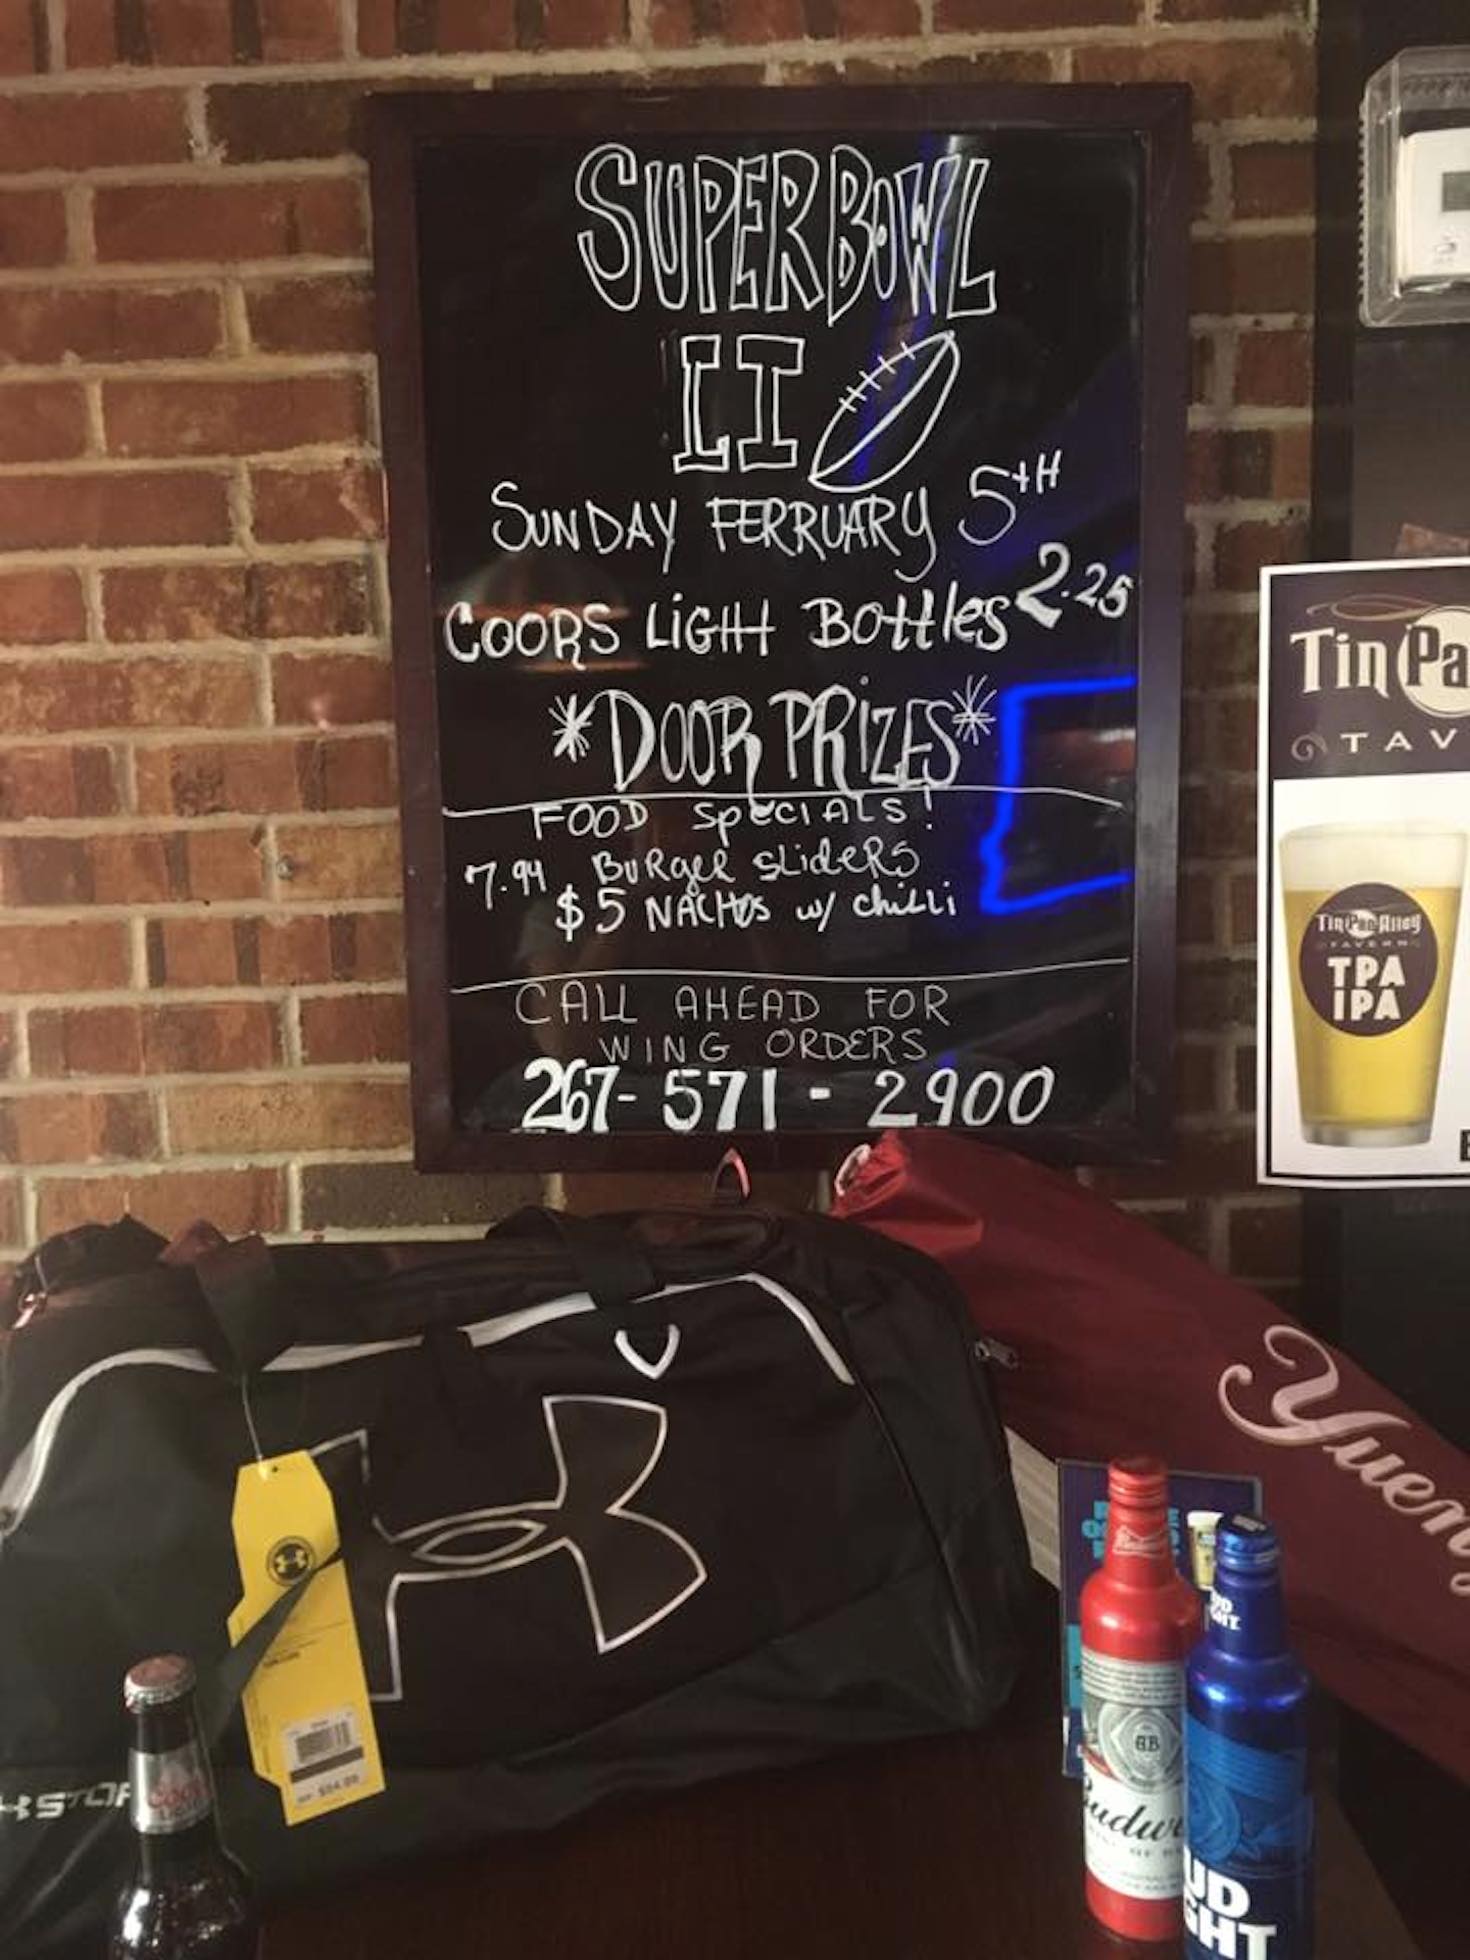 SUPERBOWL
LI
SUNDAY FERRUARY 5TH
COORS LIGHT BOTTLES 2.25
*DOOR PRIZES*
FOOD SPECIALS!
7.94 BURGER SLIDERS
$5 NACHOS w/ CHILLI
CALL AHEAD FOR
WING ORDERS
267-571-2900
Tin Pa
TAV
Tin Pan Alley
TAVERN
TPA
IPA
Yuen
Budw
UD
GHT